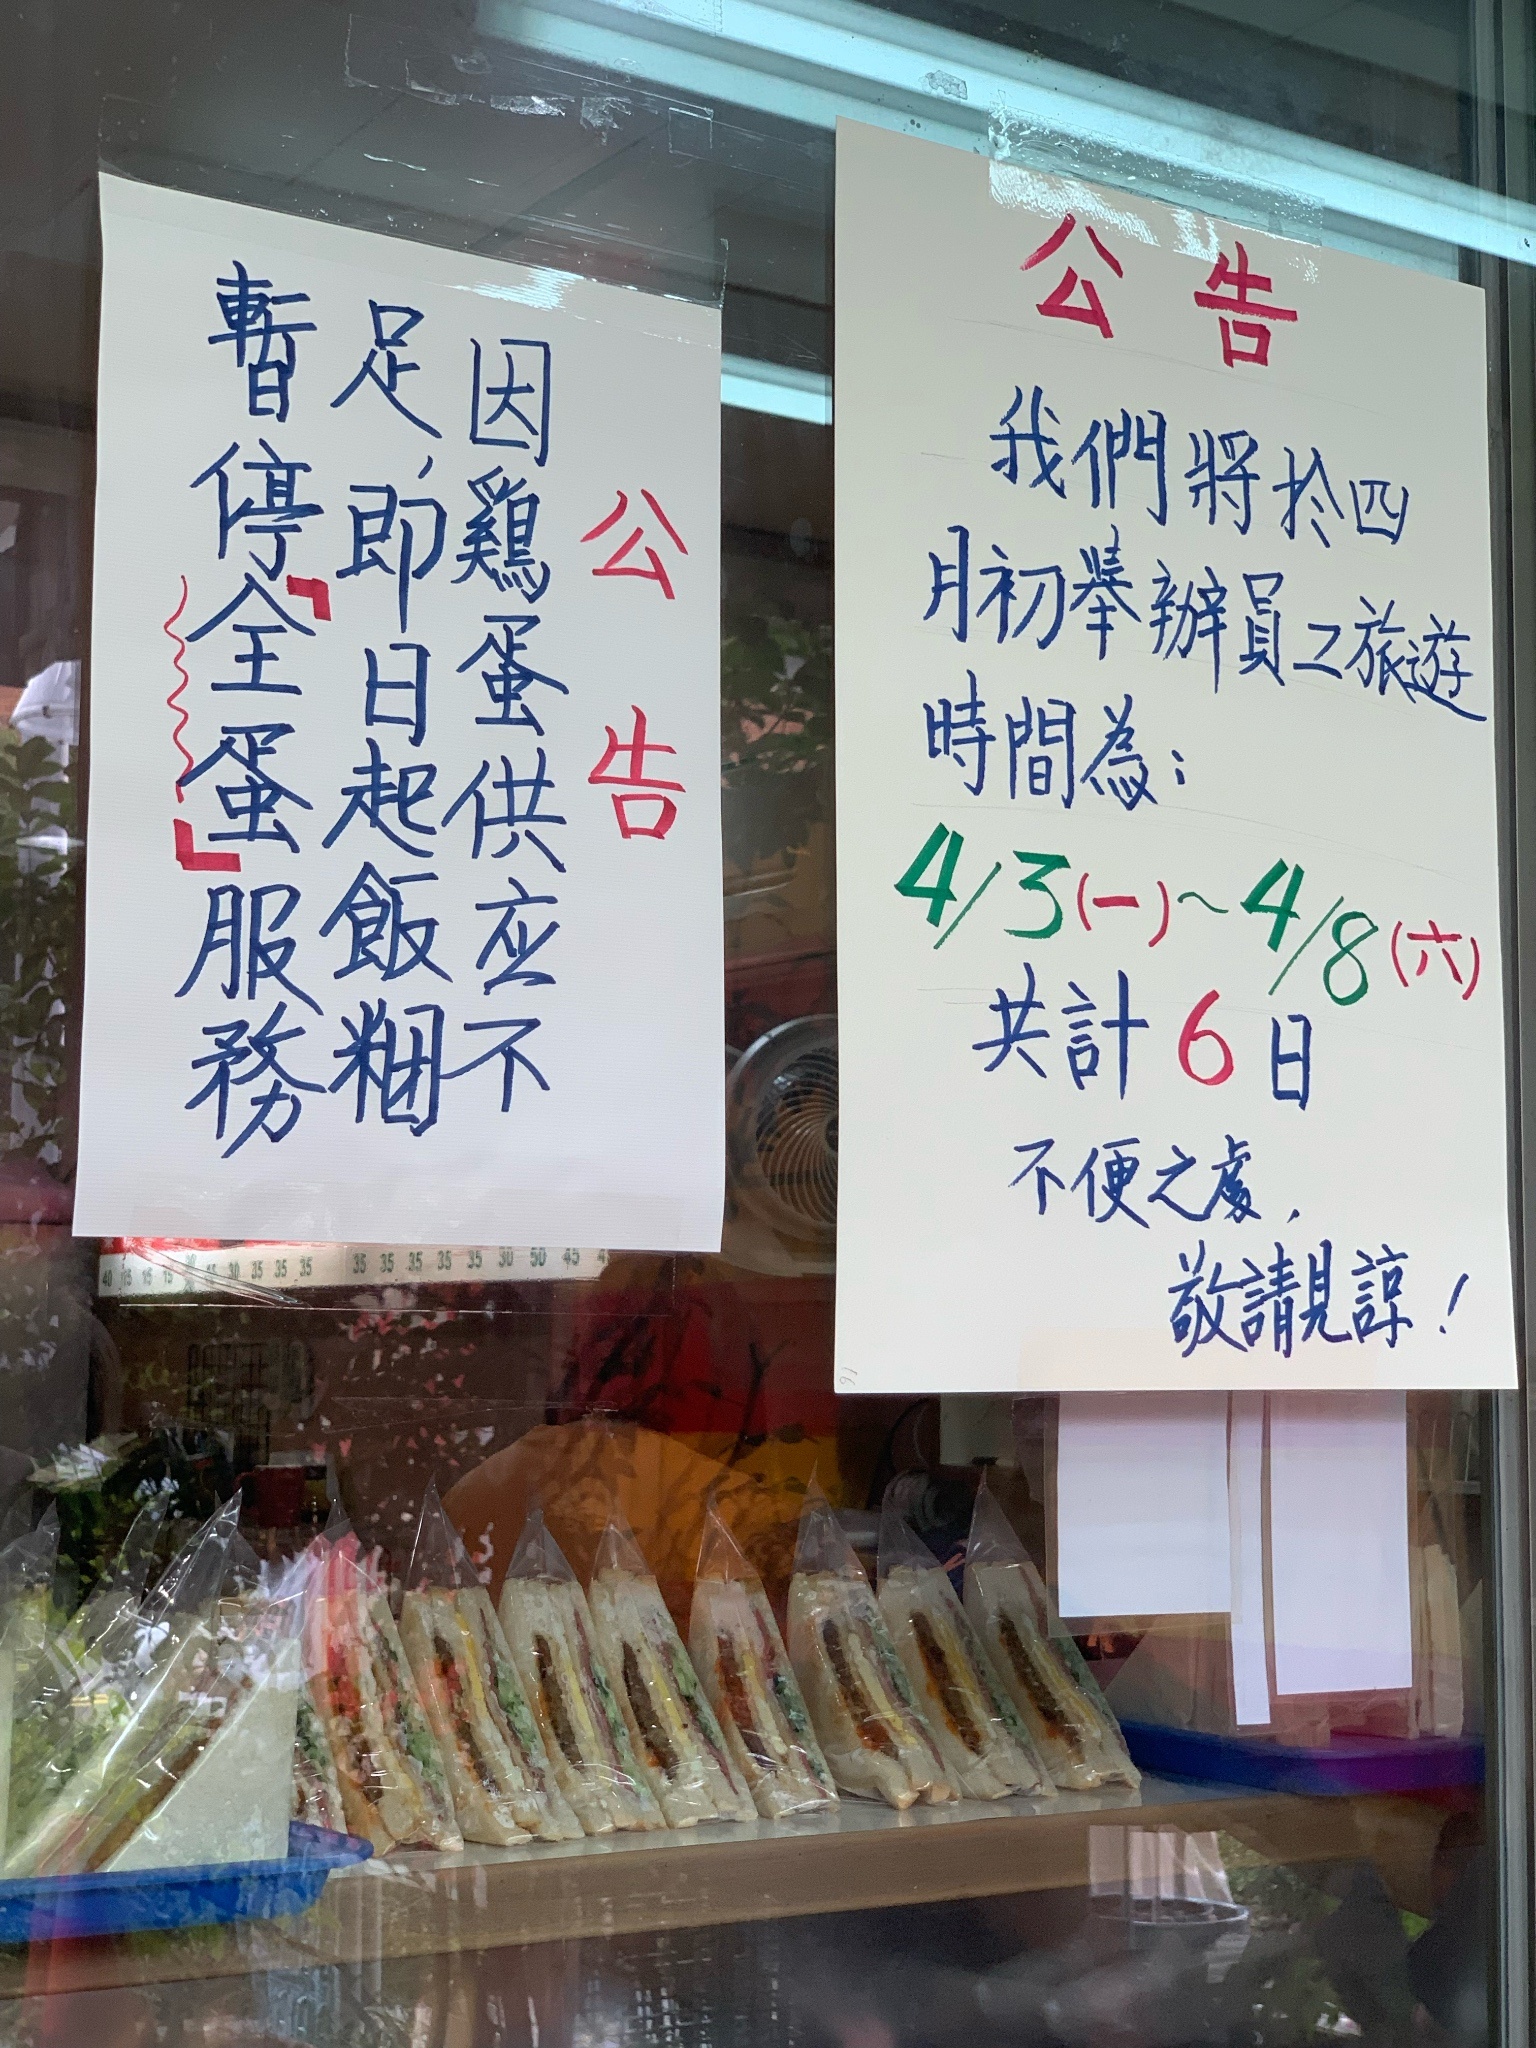 公告
因鷄蛋供应不
足,即日起飯糰
暫停「全蛋」服務
公告
我們將於四
月初舉辦員工旅遊
時間為:
4/3(一)~4/8(六)
共計6日
不便之處,
敬請見諒!